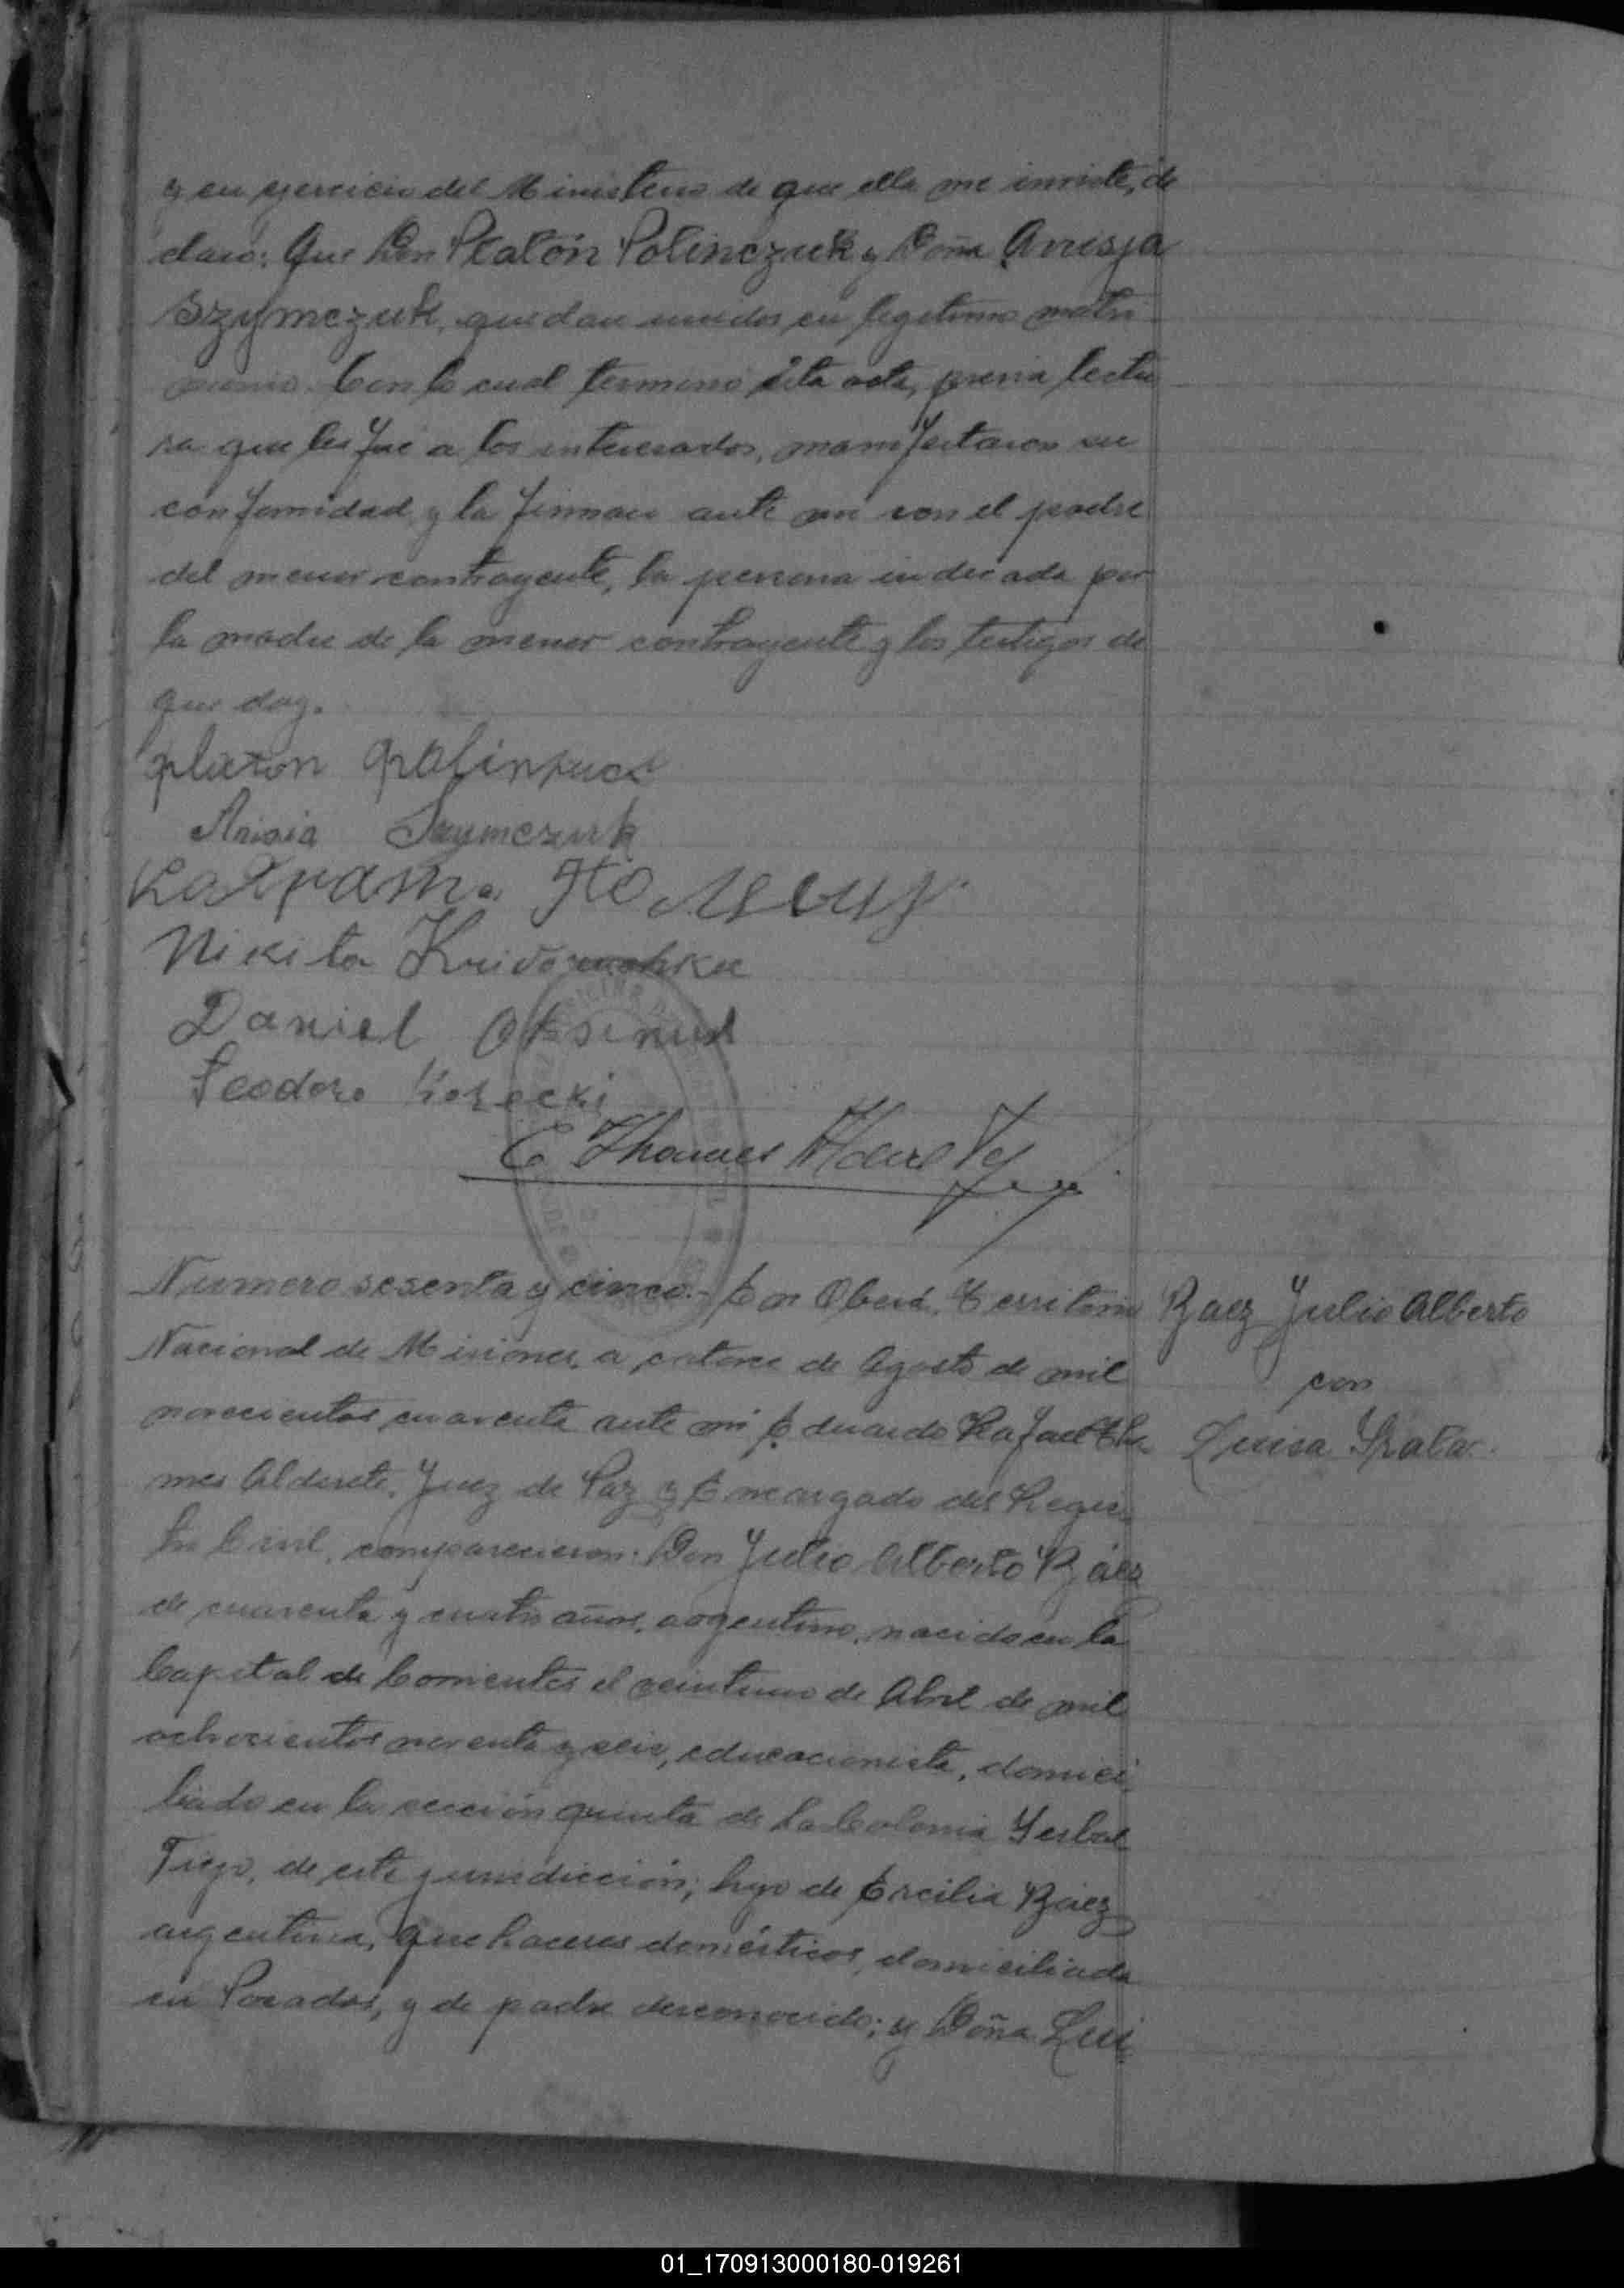 y en ejercicio del Ministerio de que ella me inviste, de
claro: Que Don Platón Polinczuk y Doña Anisja
Szymczuk, quedan unidos en legitimo matri
monio. Con lo cual terminó ésta acta, previa lectu
ra que les fue a los interesados, manifestaron su
conformidad y la firman ante mi con el padre
del menor contrayente, la persona indicada por
la madre de la menor contrayente y los testigos de
que doy.
platon
Anisia Szymczuk
Nikita
Daniel
Teodoro
E Thames Alderete
Numero sesenta y cinco.- En Oberá, Territorio
Nacional de Misiones, a catorce de Agosto de mil
novecientos cuarenta ante mi Eduardo Rafael Tha
mes Alderete, Juez de Paz y Encargado del Regis
tro Civil, comparecieron: Don Julio Alberto Báez
de cuarenta y cuatro años, argentino, nacido en la
Capital de Corrientes el veintiuno de Abril de mil
ochocientos noventa y seis, educacionista, domici
liado en la sección quinta de La Colonia Yerbal
Viejo, de esta jurisdicción; hijo de Ercilia Báez
argentina, quehaceres domésticos, domiciliada
en Posadas, y de padre desconocido; y Doña Lui
Baez Julio Alberto
con
Luisa
01_170913000180-019261